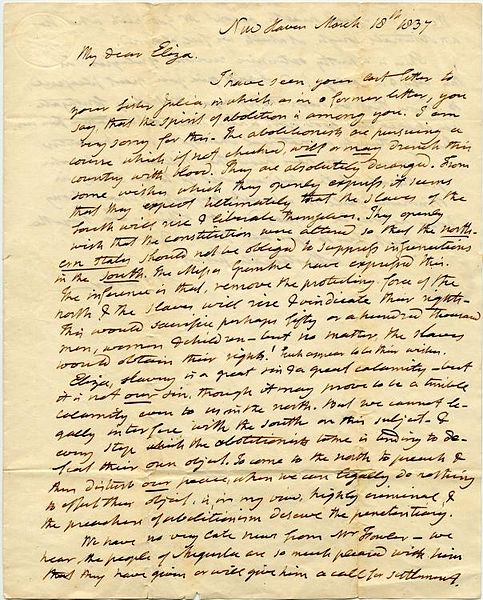 New Haven March 18th 1837
My dear Eliza.
I have seen your last letter to
your sister Julia, in which, as in a former letter, you
say, that the spirit of abolition is among you. I am
very sorry for this. The abolitionists are pursuing a
course which if not checked will or may drench this
country with blood. They are absolutely deranged. From
some wishes which they openly express, it seems
that they expect ultimately that the slaves of the
South will rise & liberate themselves. They openly
wish that the constitution were altered so that the north-
ern states should not be obliged to suppress insurrections
in the South. The Misses Grimke have expressed this.
The inference is that, remove the protecting force of the
north & the slaves will rise & vindicate their rights -
this would sacrifice perhaps fifty or a hundred thousand
men, women & children - but no matter, the slaves
would obtain their rights! Such appear to be their wishes.
Eliza, slavery is a great sin & a great calamity - but
it is not our sin, though it may prove to be a terrible
calamity even to us in the north. But we cannot le-
gally interfere with the south on this subject - &
every step which the abolitionists take is tending to de-
feat their own object. To come to the north to preach &
thus disturb our peace, when we can legally do nothing
to effect this object, is, in my view, highly criminal, &
the preachers of abolitionism deserve the penitentiary.
We have no very late news from Mr Fowler - we
hear the people of Augusta are so much pleased with him
that they have given or will give him a call for settlement.